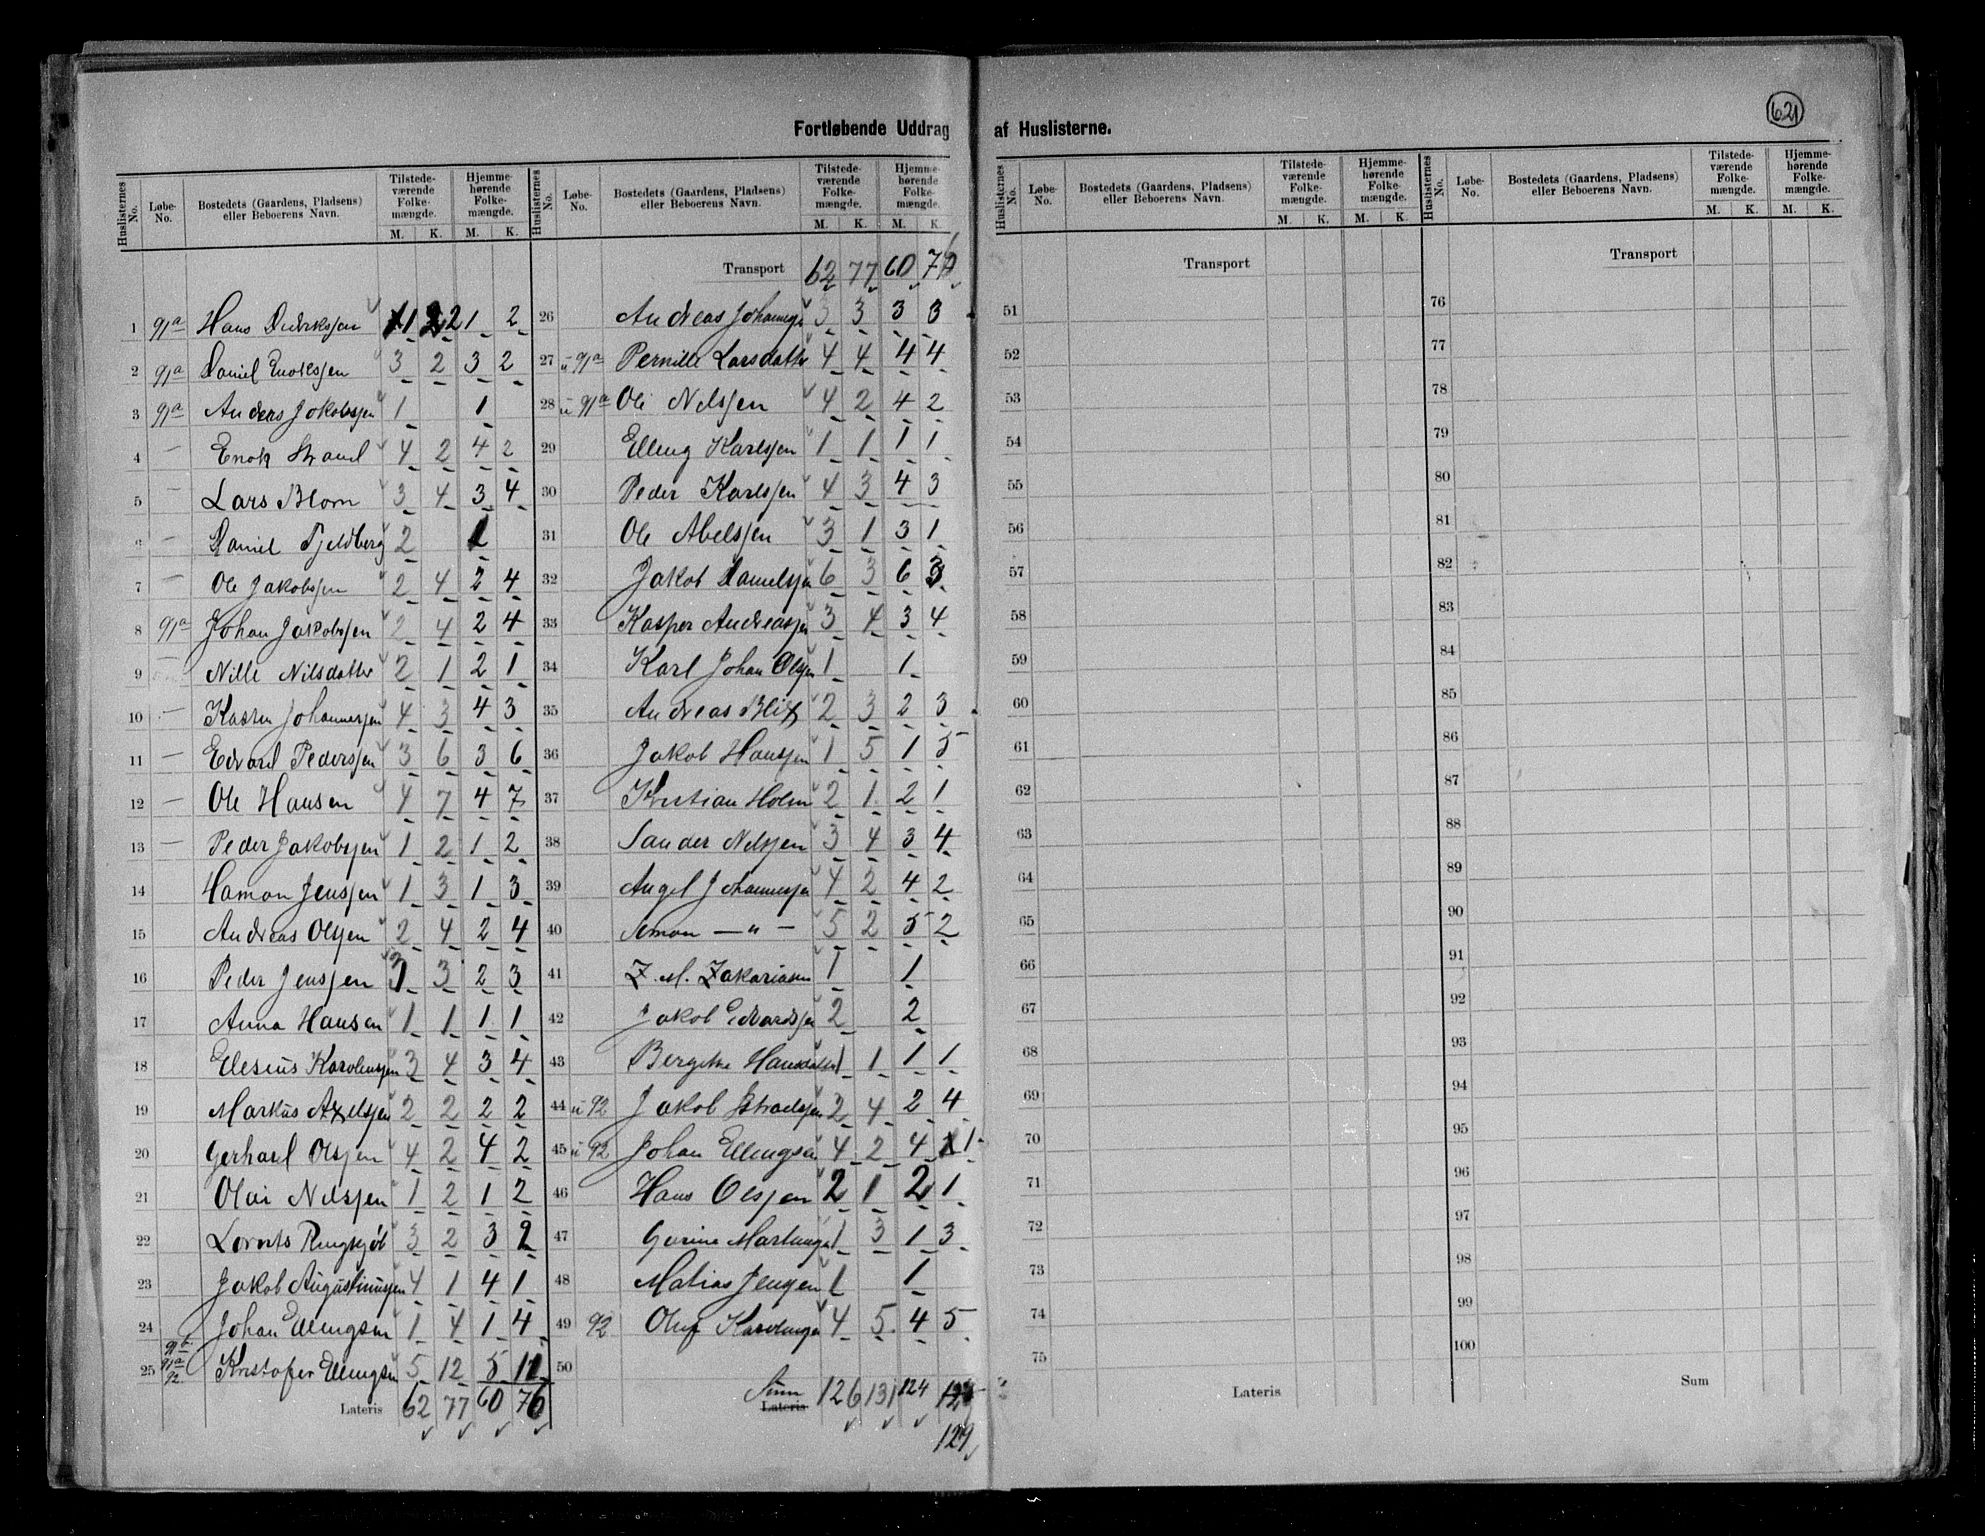 621
Fortløbende Uddrag af Huslisterne.
Huslisternes No. | Løbe-No. | Bostedets (Gaardens, Pladsens) eller Beboerens Navn. | Tilstedeværende Folkemængde. M. K. | Hjemmehørende Folkemængde. M. K.
1 91a Hans Didriksjen 1 2 1 2
2 91a Daniel Enoksjen 3 2 3 2
3 91a Anders Jakobsjen 1 1
4 — Enok Strand 4 2 4 2
5 — Lars Blom 3 4 3 4
6 — Daniel Fjeldberg 2 1
7 — Ole Jakobsjen 2 4 2 4
8 91a Johan Jakobsjen 2 4 2 4
9 — Nille Nilsdatter 2 1 2 1
10 — Kasten Johannesjen 4 3 4 3
11 — Edvard Pedersjen 3 6 3 6
12 — Ole Hansen 4 7 4 7
13 — Peder Jakobsjen 1 2 1 2
14 Hamon Jensjen 1 3 1 3
15 Andreas Olsjen 2 4 2 4
16 Peder Jensjen 3 2 3
17 Anna Hansen 1 1 1 1
18 Elesius Karolinusjen 3 4 3 4
19 Markus Axelsjen 2 2 2 2
20 Gerhard Olsjen 4 2 4 2
21 Olai Nelsjen 1 2 1 2
22 Lornts Ringskjøb 3 2 3 2
23 Jakob Augustinusjen 4 1 4 1
24 Johan Ellingsen 1 4 1 4
25 91a 92 Kristofer Ellingsen 5 12 5 11
Lateris 62 77 60 76
Huslisternes No. | Løbe-No. | Bostedets (Gaardens, Pladsens) eller Beboerens Navn. | Tilstedeværende Folkemængde. M. K. | Hjemmehørende Folkemængde. M. K.
Transport 62 77 60 76
26 Andreas Johannesjen 3 3 3 3
27 u 91a Pernille Larsdatter 4 4 4 4
28 u 91a Ole Nelsjen 4 2 4 2
29 Elling Karlsjen 1 1 1 1
30 Peder Karlsjen 4 3 4 3
31 Ole Abelsjen 3 1 3 1
32 Jakob Danielsjen 6 3 6 3
33 Kasper Andreasjen 3 4 3 4
34 Karl Johan Olsjen 1 1
35 Andreas Blix 2 3 2 3
36 Jakob Hansjen 1 5 1 5
37 Kristian Holm 2 1 2 1
38 Sander Nelsjen 3 4 3 4
39 Angel Johannesjen 4 2 4 2
40 Simon — " — 5 2 5 2
41 Z. M. Zakariasen 1 1
42 Jakob Edvardsjen 2 2
43 Bergitte Hansdatter 1 1 1 1
44 u 92 Jakob Istraelsjen 2 4 2 4
45 u 92 Johan Ellingsen 4 2 4 1
46 Hans Olsjen 2 1 2 1
47 Gurine Martinusjen 1 3 1 3
48 Matias Jensjen 1 1
49 92 Oluf Karolinusjen 4 5 4 5
50
Sum Lateris 126 131 124
129
Huslisternes No. | Løbe-No. | Bostedets (Gaardens, Pladsens) eller Beboerens Navn. | Tilstedeværende Folkemængde. M. K. | Hjemmehørende Folkemængde. M. K.
Transport
51
52
53
54
55
56
57
58
59
60
61
62
63
64
65
66
67
68
69
70
71
72
73
74
75
Lateris
Huslisternes No. | Løbe-No. | Bostedets (Gaardens, Pladsens) eller Beboerens Navn. | Tilstedeværende Folkemængde. M. K. | Hjemmehørende Folkemængde. M. K.
Transport
76
77
78
79
80
81
82
83
84
85
86
87
88
89
90
91
92
93
94
95
96
97
98
99
100
Sum